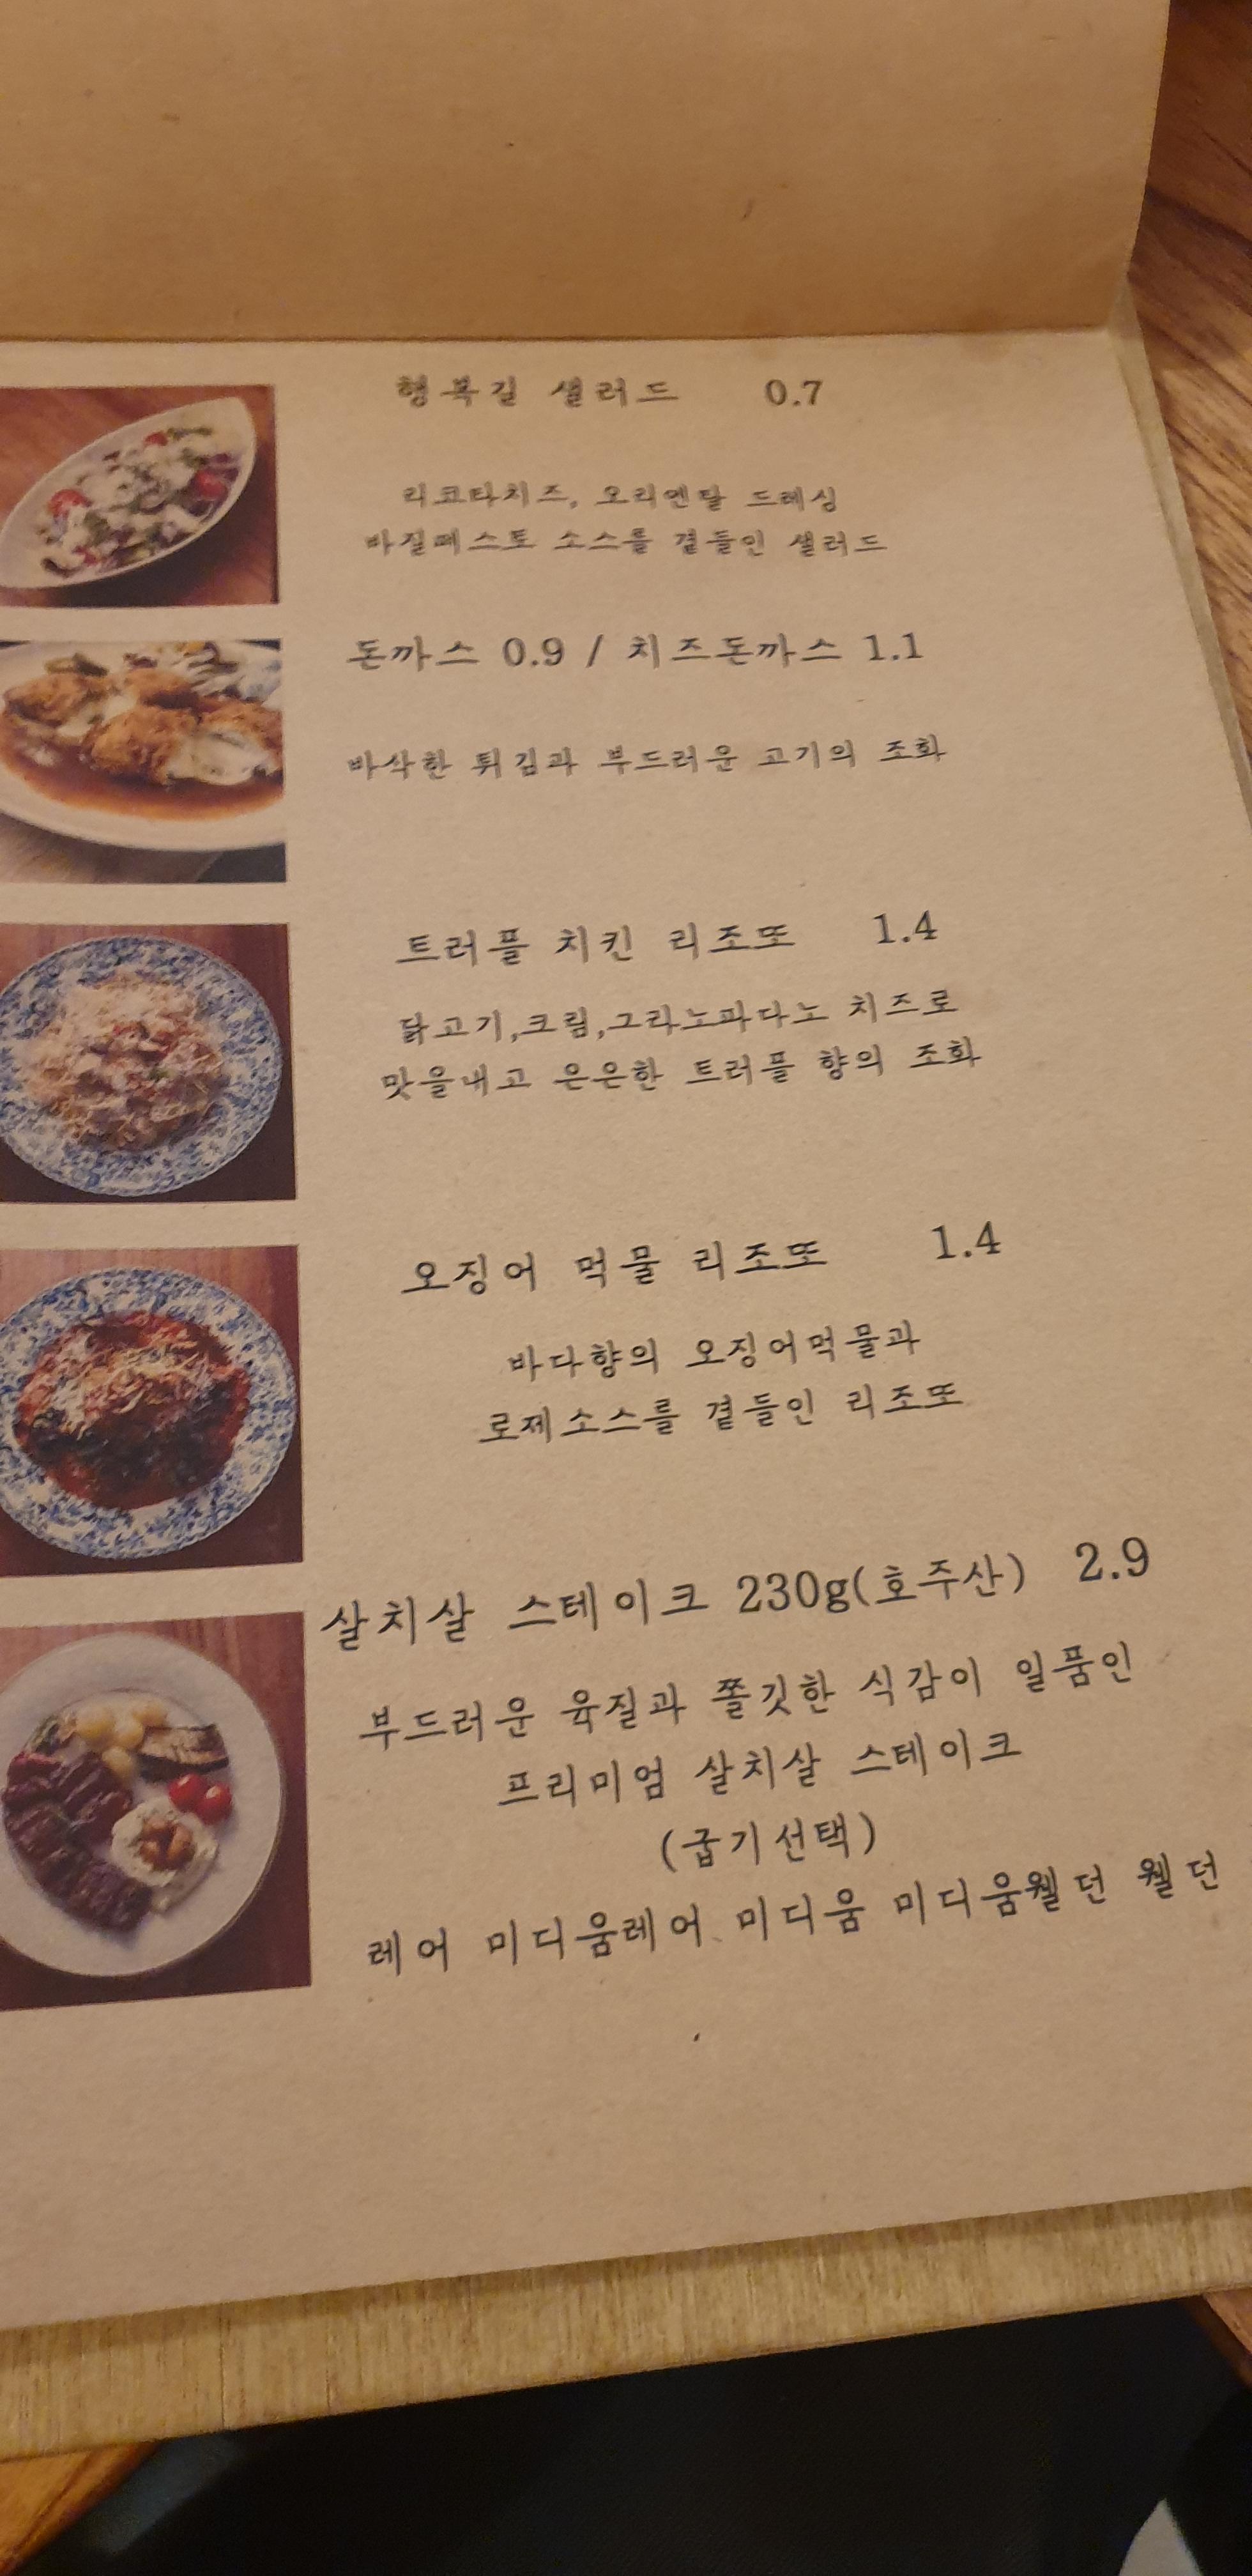 행복길 샐러드 0.7
리코타치즈, 오리엔탈 드레싱
바질페스토 소스를 곁들인 샐러드
돈까스 0.9 / 치즈돈까스 1.1
바삭한 튀김과 부드러운 고기의 조화
트러플 치킨 리조또 1.4
닭고기,크림,그라노파다노 치즈로
맛을내고 은은한 트러플 향의 조화
오징어 먹물 리조또 1.4
바다향의 오징어먹물과
로제소스를 곁들인 리조또
살치살 스테이크 230g(호주산) 2.9
부드러운 육질과 쫄깃한 식감이 일품인
프리미엄 살치살 스테이크
(굽기선택)
레어 미디움레어 미디움 미디움웰던 웰던